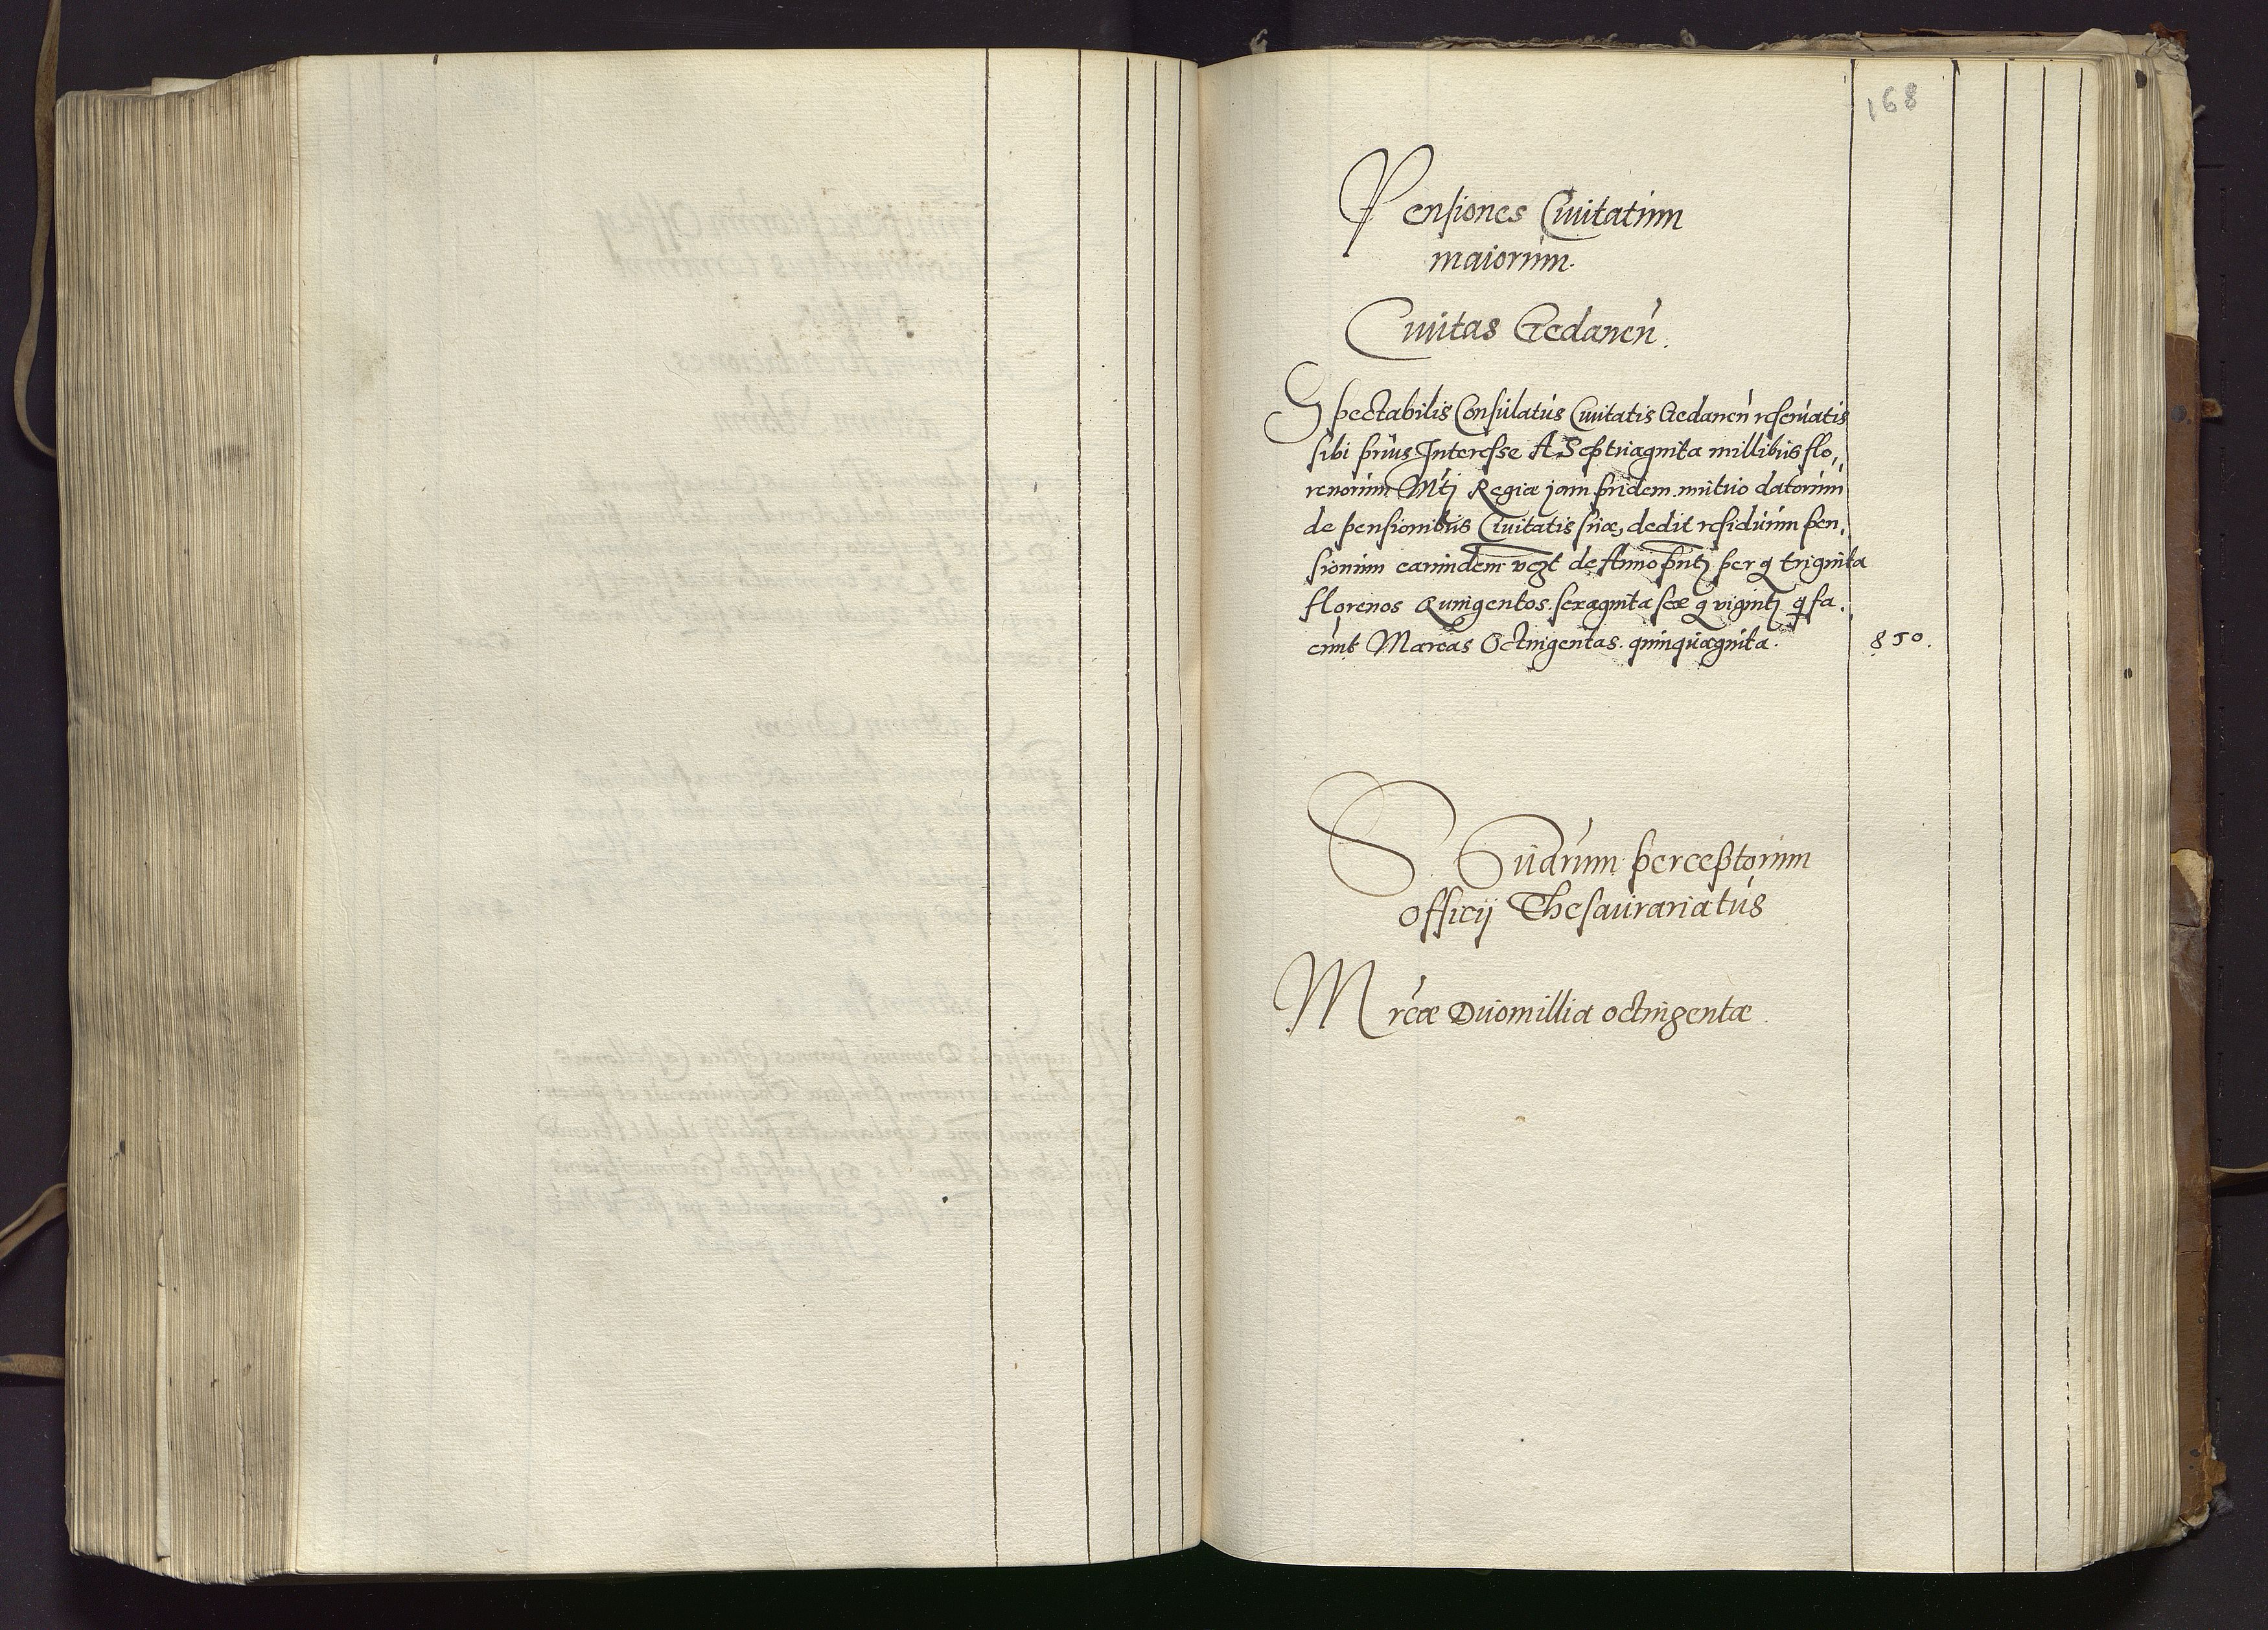 168
Pensiones Civitatum
maiorum.
Civitas Gedanen̄.
Spectabilis Consulatus Civitatis Gedanen̄ reservatis
sibi prius Interesse A Septuaginta millibus flo,
renorum Mtj Regiæ jam pridem mutuo datorum
de pensionibus Civitatis suæ, dedit residuum pen,
sionum earundem vezt de Anno pn̄tj per g triginta
florenos Quingentos. sexaginta sex g vigintj q fa,
ciunt Marcas Octingentas. quinquaginta. 850.
S. Suarum perceptorum
Officij Thesaurariatus
Mrcæ Duomillia octingentæ